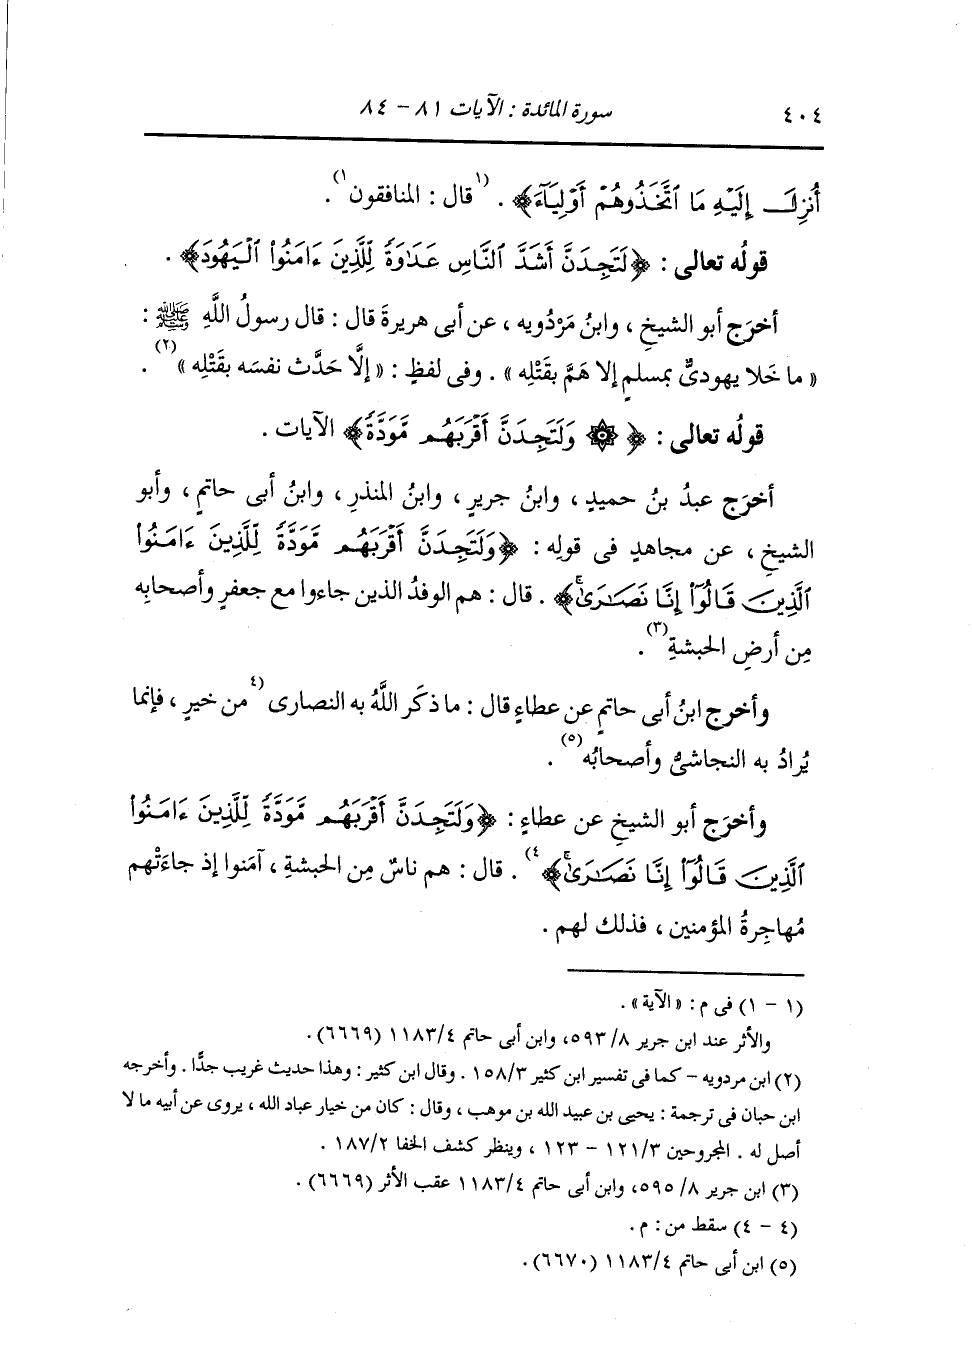 ٤٠٤ سورة المائدة : الآيات ٨١ – ٨٤
أُنزِلَ إِلَيْهِ مَا ٱتَّخَذُوهُمْ أَوْلِيَآءَ﴾ . (١قال : المنافقون١) .
قولُه تعالى : ﴿لَتَجِدَنَّ أَشَدَّ ٱلنَّاسِ عَدَٰوَةً لِّلَّذِينَ ءَامَنُوا۟ ٱلْيَهُودَ﴾ .
أخرَج أبو الشيخِ ، وابنُ مَرْدُويه ، عن أبى هريرةَ قال : قال رسولُ اللَّهِ ﷺ :
« ما خَلا يهودىٌّ بمسلمٍ إلا هَمَّ بقَتْلِه » . وفى لفظٍ : « إلَّا حَدَّث نفسَه بقَتْلِه »(٢) .
قولُه تعالى : ﴿ ۞ وَلَتَجِدَنَّ أَقْرَبَهُم مَّوَدَّةً﴾ الآيات .
أخرَج عبدُ بنُ حميدٍ ، وابنُ جريرٍ ، وابنُ المنذرِ ، وابنُ أبى حاتمٍ ، وأبو
الشيخِ ، عن مجاهدٍ فى قولِه : ﴿وَلَتَجِدَنَّ أَقْرَبَهُم مَّوَدَّةً لِّلَّذِينَ ءَامَنُوا۟
ٱلَّذِينَ قَالُوٓا۟ إِنَّا نَصَٰرَىٰۚ﴾ . قال : هم الوفدُ الذين جاءوا مع جعفرٍ وأصحابِه
مِن أرضِ الحبشةِ(٣) .
وأخرج ابنُ أبى حاتمٍ عن عطاءٍ قال : ما ذكَر اللَّهُ به النصارى (٤من خيرٍ ، فإنما
يُرادُ به النجاشىُّ وأصحابُه(٥) .
وأخرَج أبو الشيخِ عن عطاءٍ : ﴿وَلَتَجِدَنَّ أَقْرَبَهُم مَّوَدَّةً لِّلَّذِينَ ءَامَنُوا۟
ٱلَّذِينَ قَالُوٓا۟ إِنَّا نَصَٰرَىٰۚ﴾٤) . قال : هم ناسٌ مِن الحبشةِ ، آمَنوا إذ جاءَتْهم
مُهاجِرةُ المؤمنين ، فذلك لهم .
(١ – ١) فى م : « الآية » .
والأثر عند ابن جرير ٨/ ٥٩٣، وابن أبى حاتم ٤/ ١١٨٣ (٦٦٦٩) .
(٢) ابن مردويه – كما فى تفسير ابن كثير ٣/ ١٥٨ . وقال ابن كثير : وهذا حديث غريب جدًّا . وأخرجه
ابن حبان فى ترجمة : يحيى بن عبيد الله بن موهب ، وقال : كان من خيار عباد الله ، يروى عن أبيه ما لا
أصل له . المجروحين ٣/ ١٢١ – ١٢٣ ، وينظر كشف الخفا ٢/ ١٨٧ .
(٣) ابن جرير ٨/ ٥٩٥، وابن أبى حاتم ٤/ ١١٨٣ عقب الأثر (٦٦٦٩) .
(٤ – ٤) سقط من : م .
(٥) ابن أبى حاتم ٤/ ١١٨٣ (٦٦٧٠) .